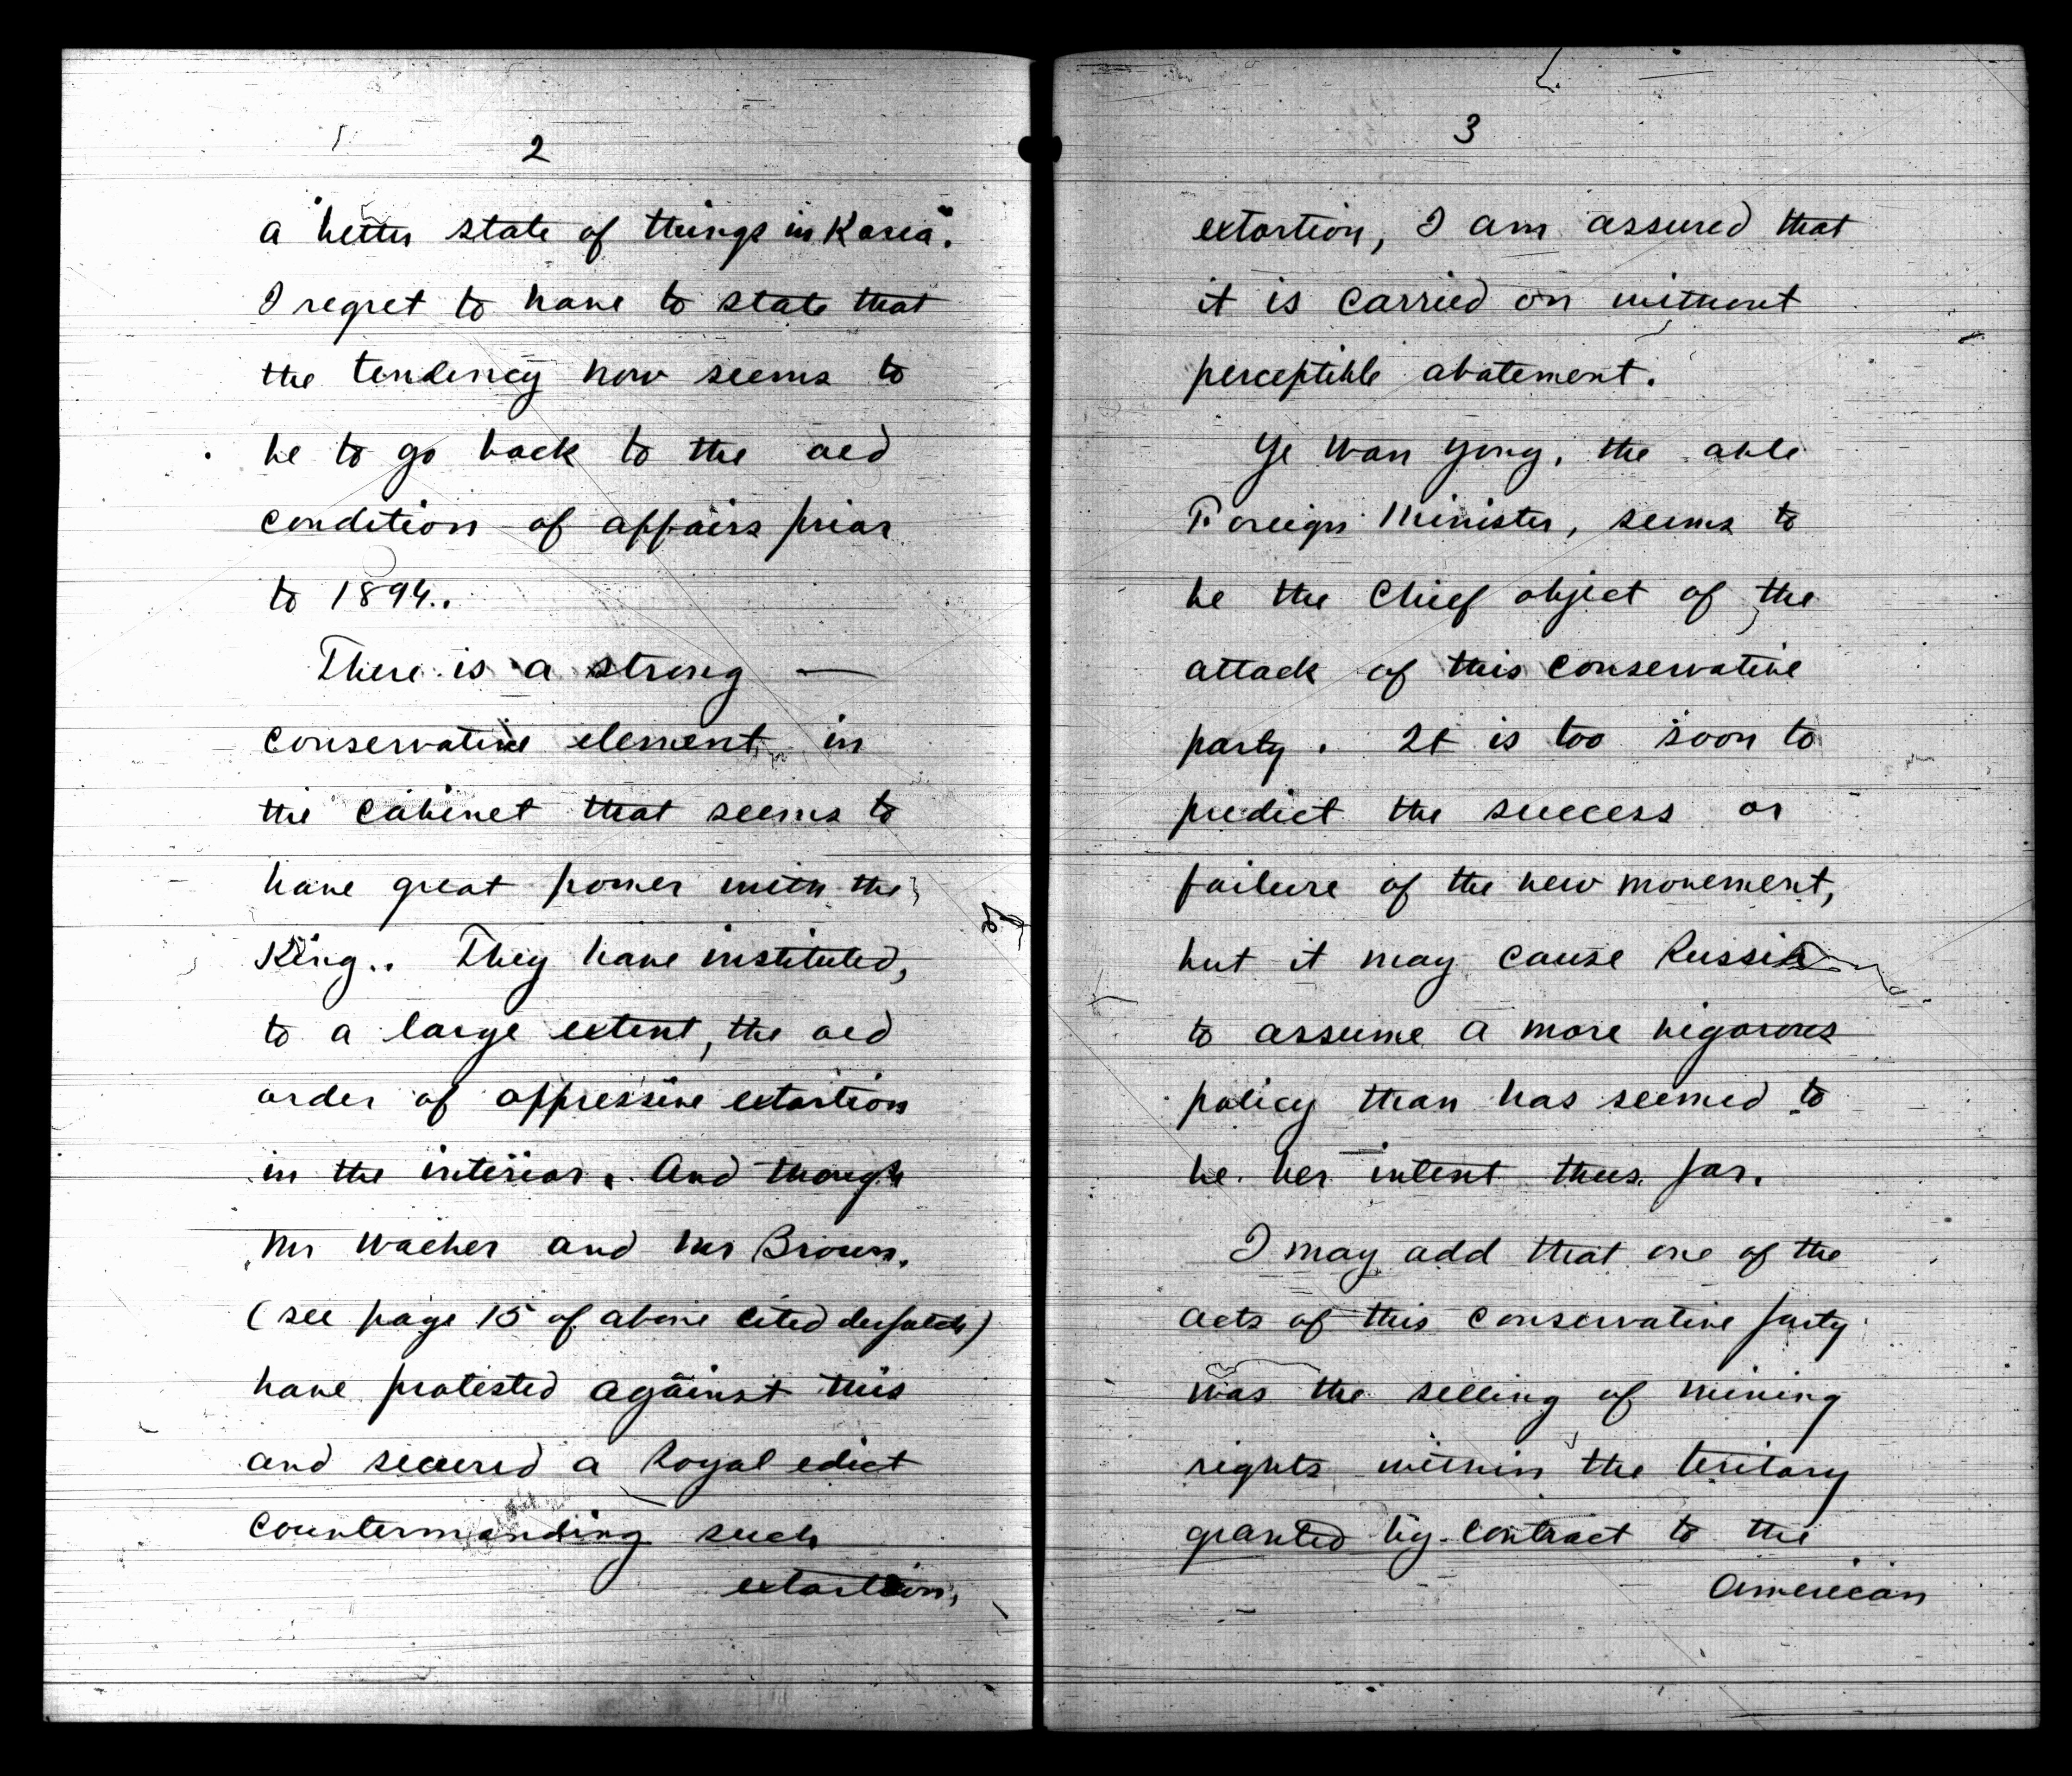 2
a "better state of things in Korea".
I regret to have to state that
the tendency now seems to
be to go back to the old
condition of affairs prior
to 1894.
There is a strong —
conservative element in
the cabinet that seems to
have great power with the
King. They have instituted,
to a large extent, the old
order of oppressive extortion
in the interior. And though
Mr Waeber and Mr Brown.
(see page 15 of above cited despatch)
have protested against this
and secured a Royal edict
countermanding such
extortion,
3
extortion, I am assured that
it is carried on without
perceptible abatement.
Ye Wan Yong, the able
Foreign Minister, seems to
be the Chief object of the
attack of this conservative
party. It is too soon to
predict the success or
failure of the new movement,
but it may cause Russia
to assume a more vigorous
policy than has seemed to
be her intent thus far.
I may add that one of the
acts of this conservative party
was the selling of mining
rights within the teritory
granted by contract to the
American